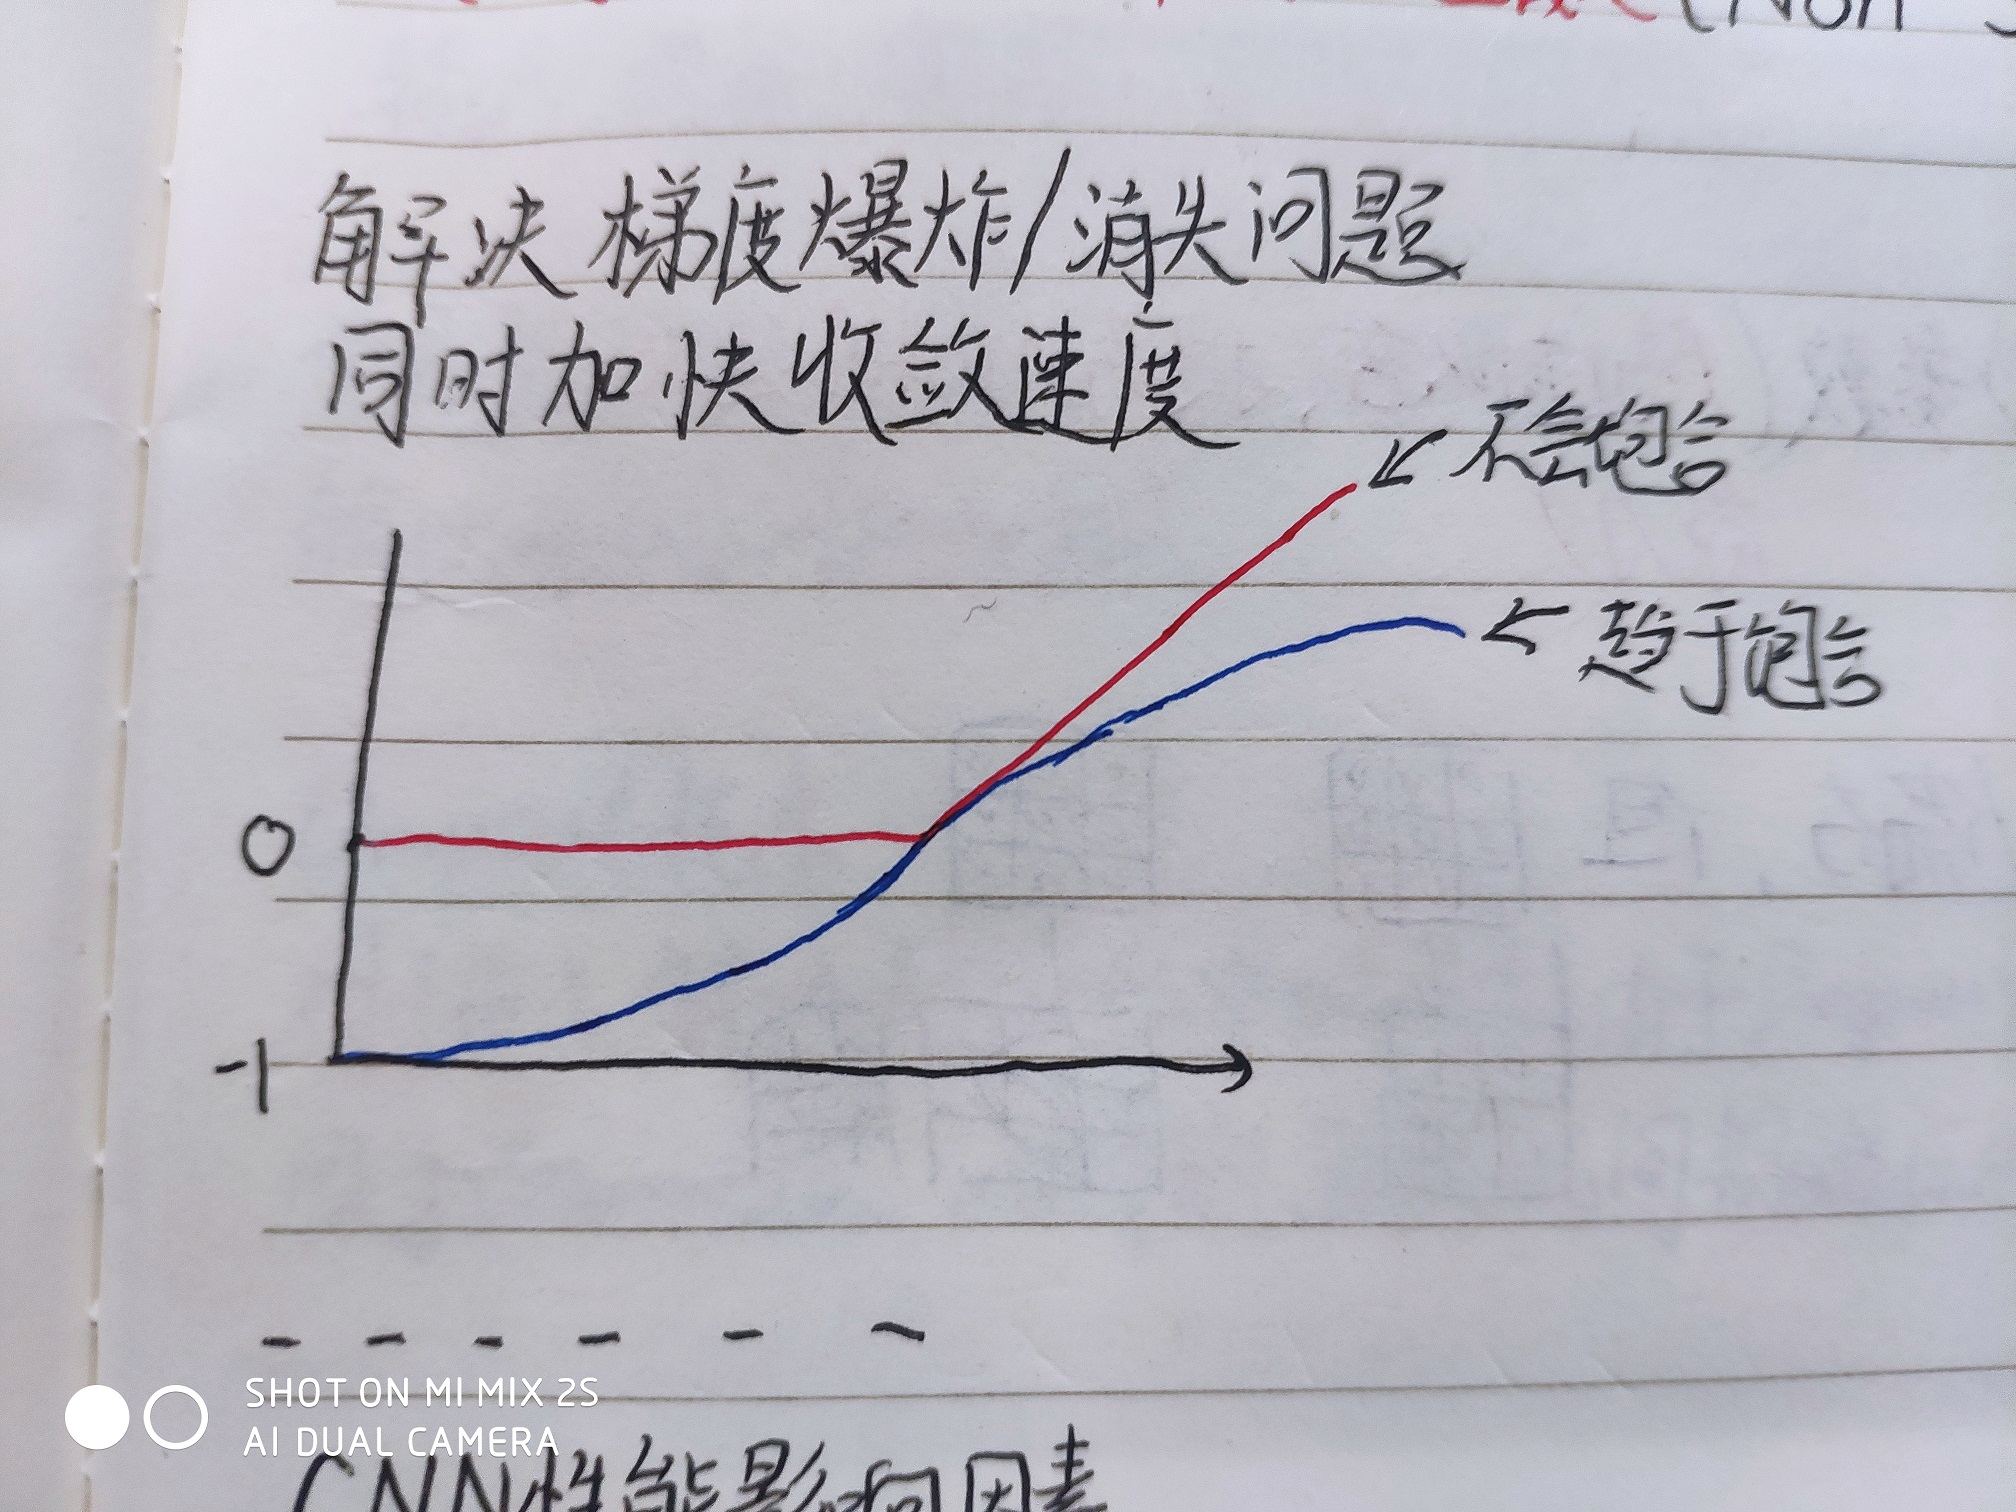 (Non
解决梯度爆炸/消失问题
同时加快收敛速度
不会饱合
趋于饱合
0
-1
SHOT ON MI MIX 2S
AI DUAL CAMERA
CNN性能影响因素